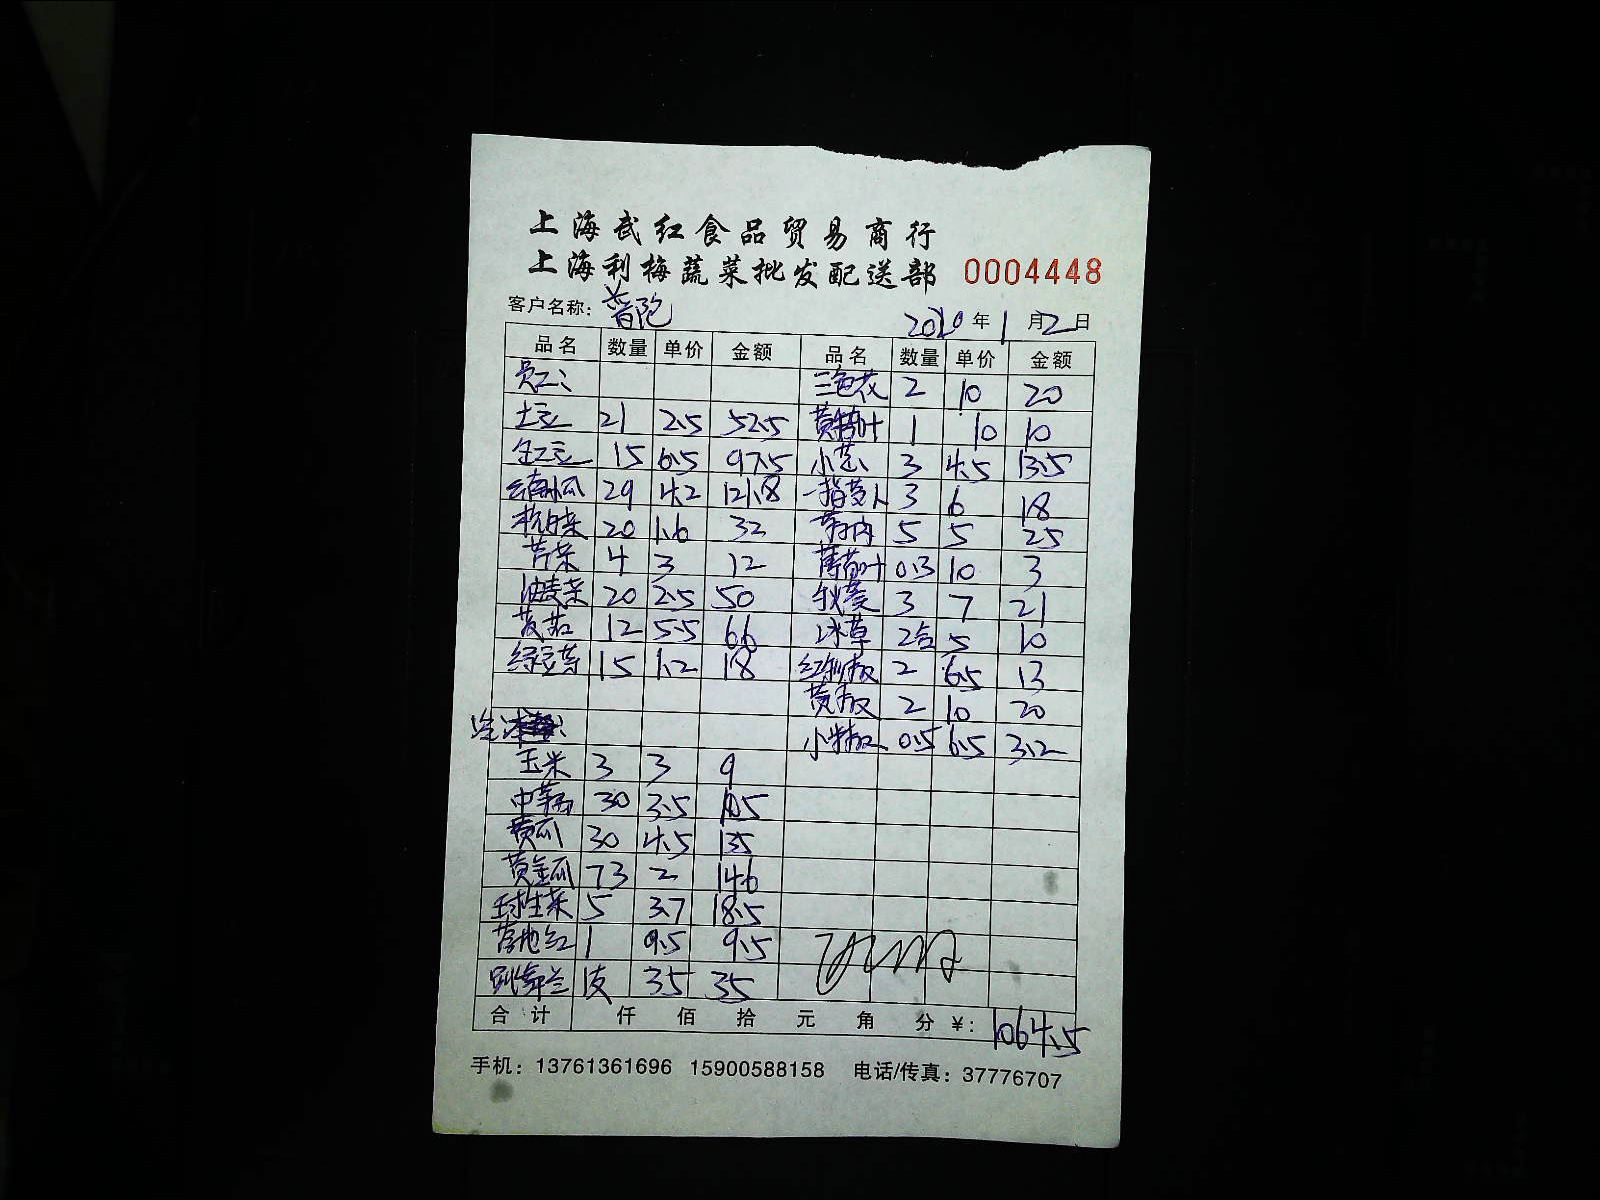 上海武红食品贸易商行
上海利梅蔬菜批发配送部 0004448
客户名称: 普陀 2020年1月2日
品名 数量 单价 金额 品名 数量 单价 金额
员工: 三色花 2 10 20
土豆 21 2.5 52.5 黄 叶 1 10 10
豆 15 6.5 97.5 小葱 3 4.5 13.5
南瓜 29 4.2 121.8 3 6 18
杭白菜 20 1.6 32 5 5 25
芹菜 4 3 12 薄荷叶 0.3 10 3
油麦菜 20 2.5 50 秋葵 3 7 21
茭菇 12 5.5 66 冰草 2盒 5 10
绿豆芽 15 1.2 18 红 椒 2 6.5 13
黄椒 2 10 20
小 椒 0.5 6.5 3.2
玉米 3 3 9
中 30 3.5 105
黄瓜 30 4.5 135
黄金瓜 73 2 146
球生菜 5 3.7 18.5
落地红 1 9.5 9.5
跳舞兰 1支 35 35
合计 仟 佰 拾 元 角 分 ¥: 1064.5
手机: 13761361696 15900588158 电话/传真: 37776707